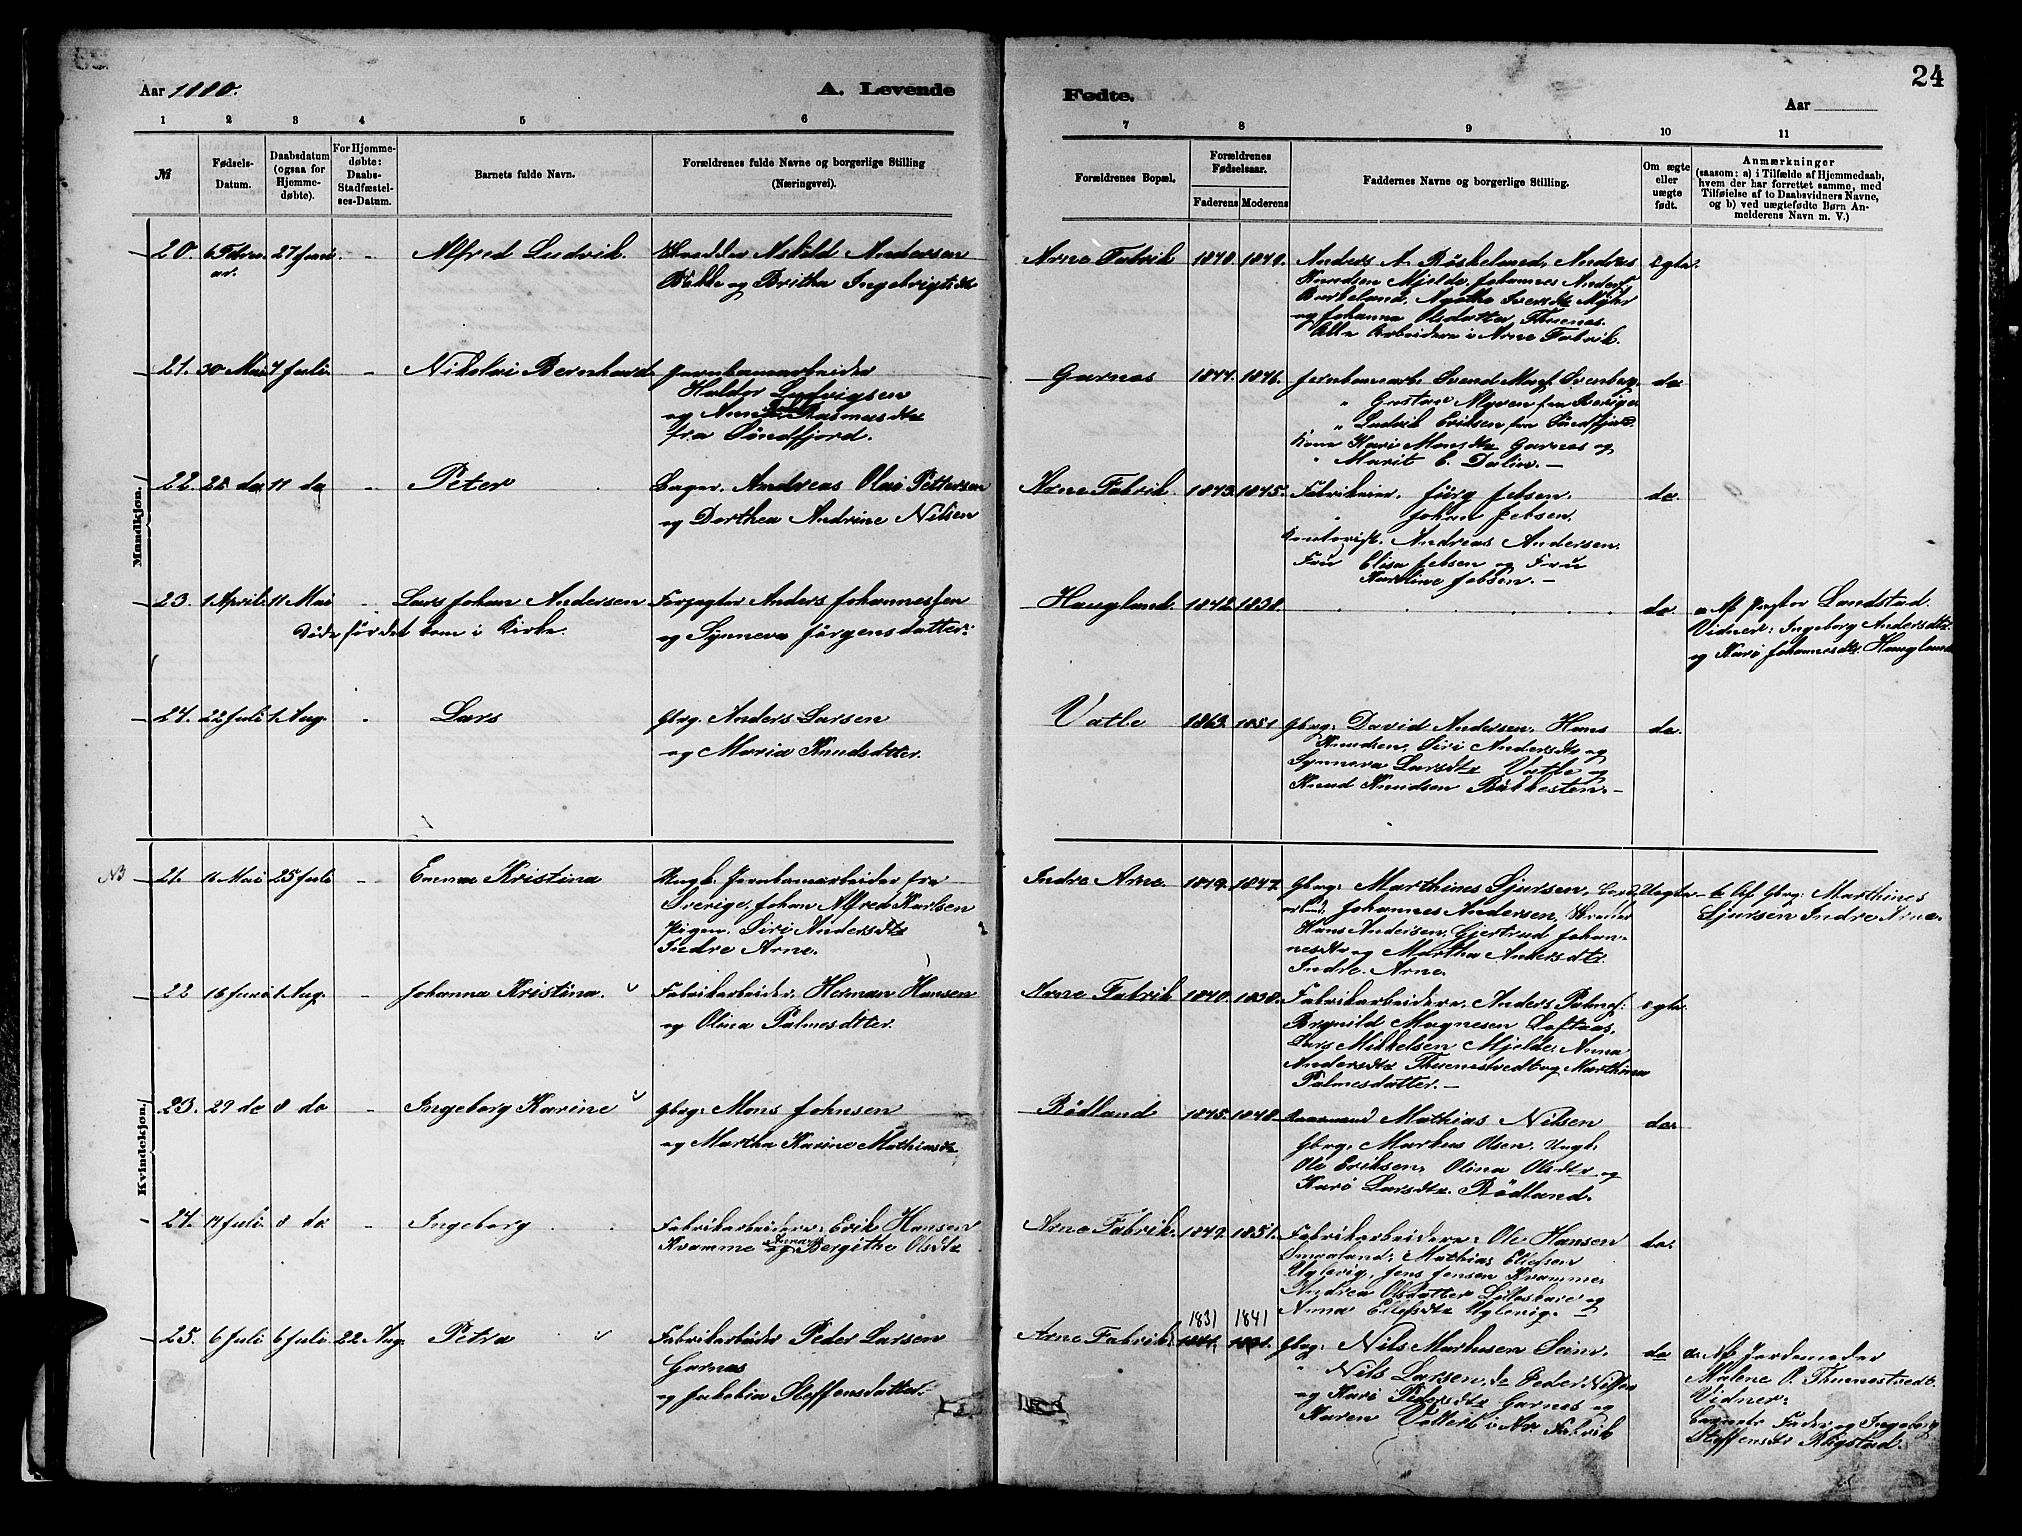 24
Aar 1880.
A. Levende
Fødte.
Aar
1 2 3 4 5 6 7 8 9 10 11
№
Fødsels-
Datum.
Daabsdatum
(ogsaa for
Hjemme-
døbte).
For Hjemme-
døbte:
Daabs-
Stadfæstel-
ses-Datum.
Barnets fulde Navn.
Forældrenes fulde Navne og borgerlige Stilling
(Næringsvei).
Forældrenes Bopæl.
Forældrenes
Fødselsaar.
Faderens
Moderens
Faddernes Navne og borgerlige Stilling.
Om ægte
eller
uægte
født.
Anmærkninger
(saasom: a) i Tilfælde af Hjemmedaab,
hvem der har forrettet samme, med
Tilføielse af to Daabsvidners Navne,
og b) ved uægtefødte Børn An-
melderens Navn m. V.)
Mandkjøn.
20. 27 Juni Alfred Ludvik. Askild Andersen
Bekke og Britha Ingebrigtsdtr
Arne Fabrik 1840. 1840. Anders A. Røskeland, Andres
Knudsen Mjelde, Johannes Anders.
Burkeland,
og Johanna Olsdatter Thunes.
Alle Arbeidere i Arne Fabrik.
ægte.
21. 30 Mai 4 Juli - Nikolai Bernhard Jernbanearbeider
Haldor Ludvigsen
og Anna Rasmusdtr
fra Søndfjord.
Garnes 1844. 1846. Jernbanearb. Svend Svenberg
" Gustav Myren fra Sverige
" Ludvik Eriksen fra Søndfjord.
Kone Kari Monsdtr Garnes og
" Marit E. Dalin. -
do
22. 28 do 11 do - Peter Andreas Olai Pettersen
og Dorthea Andrine Nilsen
Arne Fabrik 1843. 1845. Fabrikeier, Jürg Jebsen.
" Johan Jebsen.
Kontorist. Andreas Andersen.
Fru Elisa Jebsen og Fru
Karoline Jebsen. -
do.
23. 1 April. 11 Mai - Lars Johan Andersen Forpagter Anders Johannessen
Døde før det kom i Kirke. og Synneva Jørgensdatter.
Haugland. 1842. 1838. do. a. Af Pastor Landstad.
Vidner: Ingeborg Andersdtr
og Kari Johannesdtr Haugland
24. 22 Juli 1 Aug. - Lars Gbrg. Anders Larsen
og Maria Knudsdatter.
Vatle 1863. 1851 Gbrg. David Andersen, Hans
Knudsen, Siri Andersdtr og
Synneva Larsdtr Vatle og
Knud Knudsen Bukkesten. -
do.
Kvindekjøn.
NB 21. 11 Mai 25 Juli - Emma Kristina Ungk. Jernbanearbeider fra
Sverige, Johan Alfred Karlsen
Pigen, Siri Andersdtr
Indre Arne.
Indre Arne 1849. 1847. Gbrg. Marthines Sjursen,
Johannes Andersen,
Hans Andersen, Gjertrud Johan-
nesdtr og Martha Andersdtr
Indre Arne.
Uægte - b. Af Gbrg: Marthines
Sjursen Indre Arne.
22 16 Juni 1 Aug. - Johanna Kristina. Fabrikarbeider, Herman Hansen
og Olina Palmesdatter.
Arne Fabrik 1840. 1838. Fabrikarbeidere, Anders Palmes.
Brynild Magnesen Loftaas,
Lars Mikkelsen Mjelde, Anna
Andersdtr Thunestvedt og Marthina
Palmesdatter. -
ægte.
23. 29 do 8 do - Ingeborg Karine Gbrg: Mons Johnsen
og Martha Karine Mathiasdtr
Rødland 1845. 1848. Mathias Nilsen
Gbrg. Markus Olsen, Ungk.
Ole Eriksen, Olina Olsdtr og
Kari Larsdtr Rødland.
do.
24. 14 Juli. 8 do - Ingeborg Fabrikarbeidere, Erik Hansen
Kvamme og Bergithe Olsdtr
Arne Fabrik. 1849. 1851. Fabrikarbeidere: Ole Hansen
Smaaland, Mathias Ellefsen
Uglevig, Jens Jensen Kvamme,
Andrea Olsdatter Lilleskare og
Anna Ellefsdtr Uglevig. -
do.
25. 6 Juli 6 Juli 22 Aug. Petra Fabrikarbeider Peder Larsen
Garnes
og Jakobia Steffensdatter.
Arne Fabrik. 1831 1841 Gbrg: Nils Markusen Seim.
" Nils Larsen, do Peder Nilsen
og Kari Pedersdtr Garnes og
Karen i Ar. Fabrik
do a. Af Jordemoder
Malene O. Thunestvedt.
Vidner:
Barnets Fader og Ingeborg
Steffensdtr Røgstad.